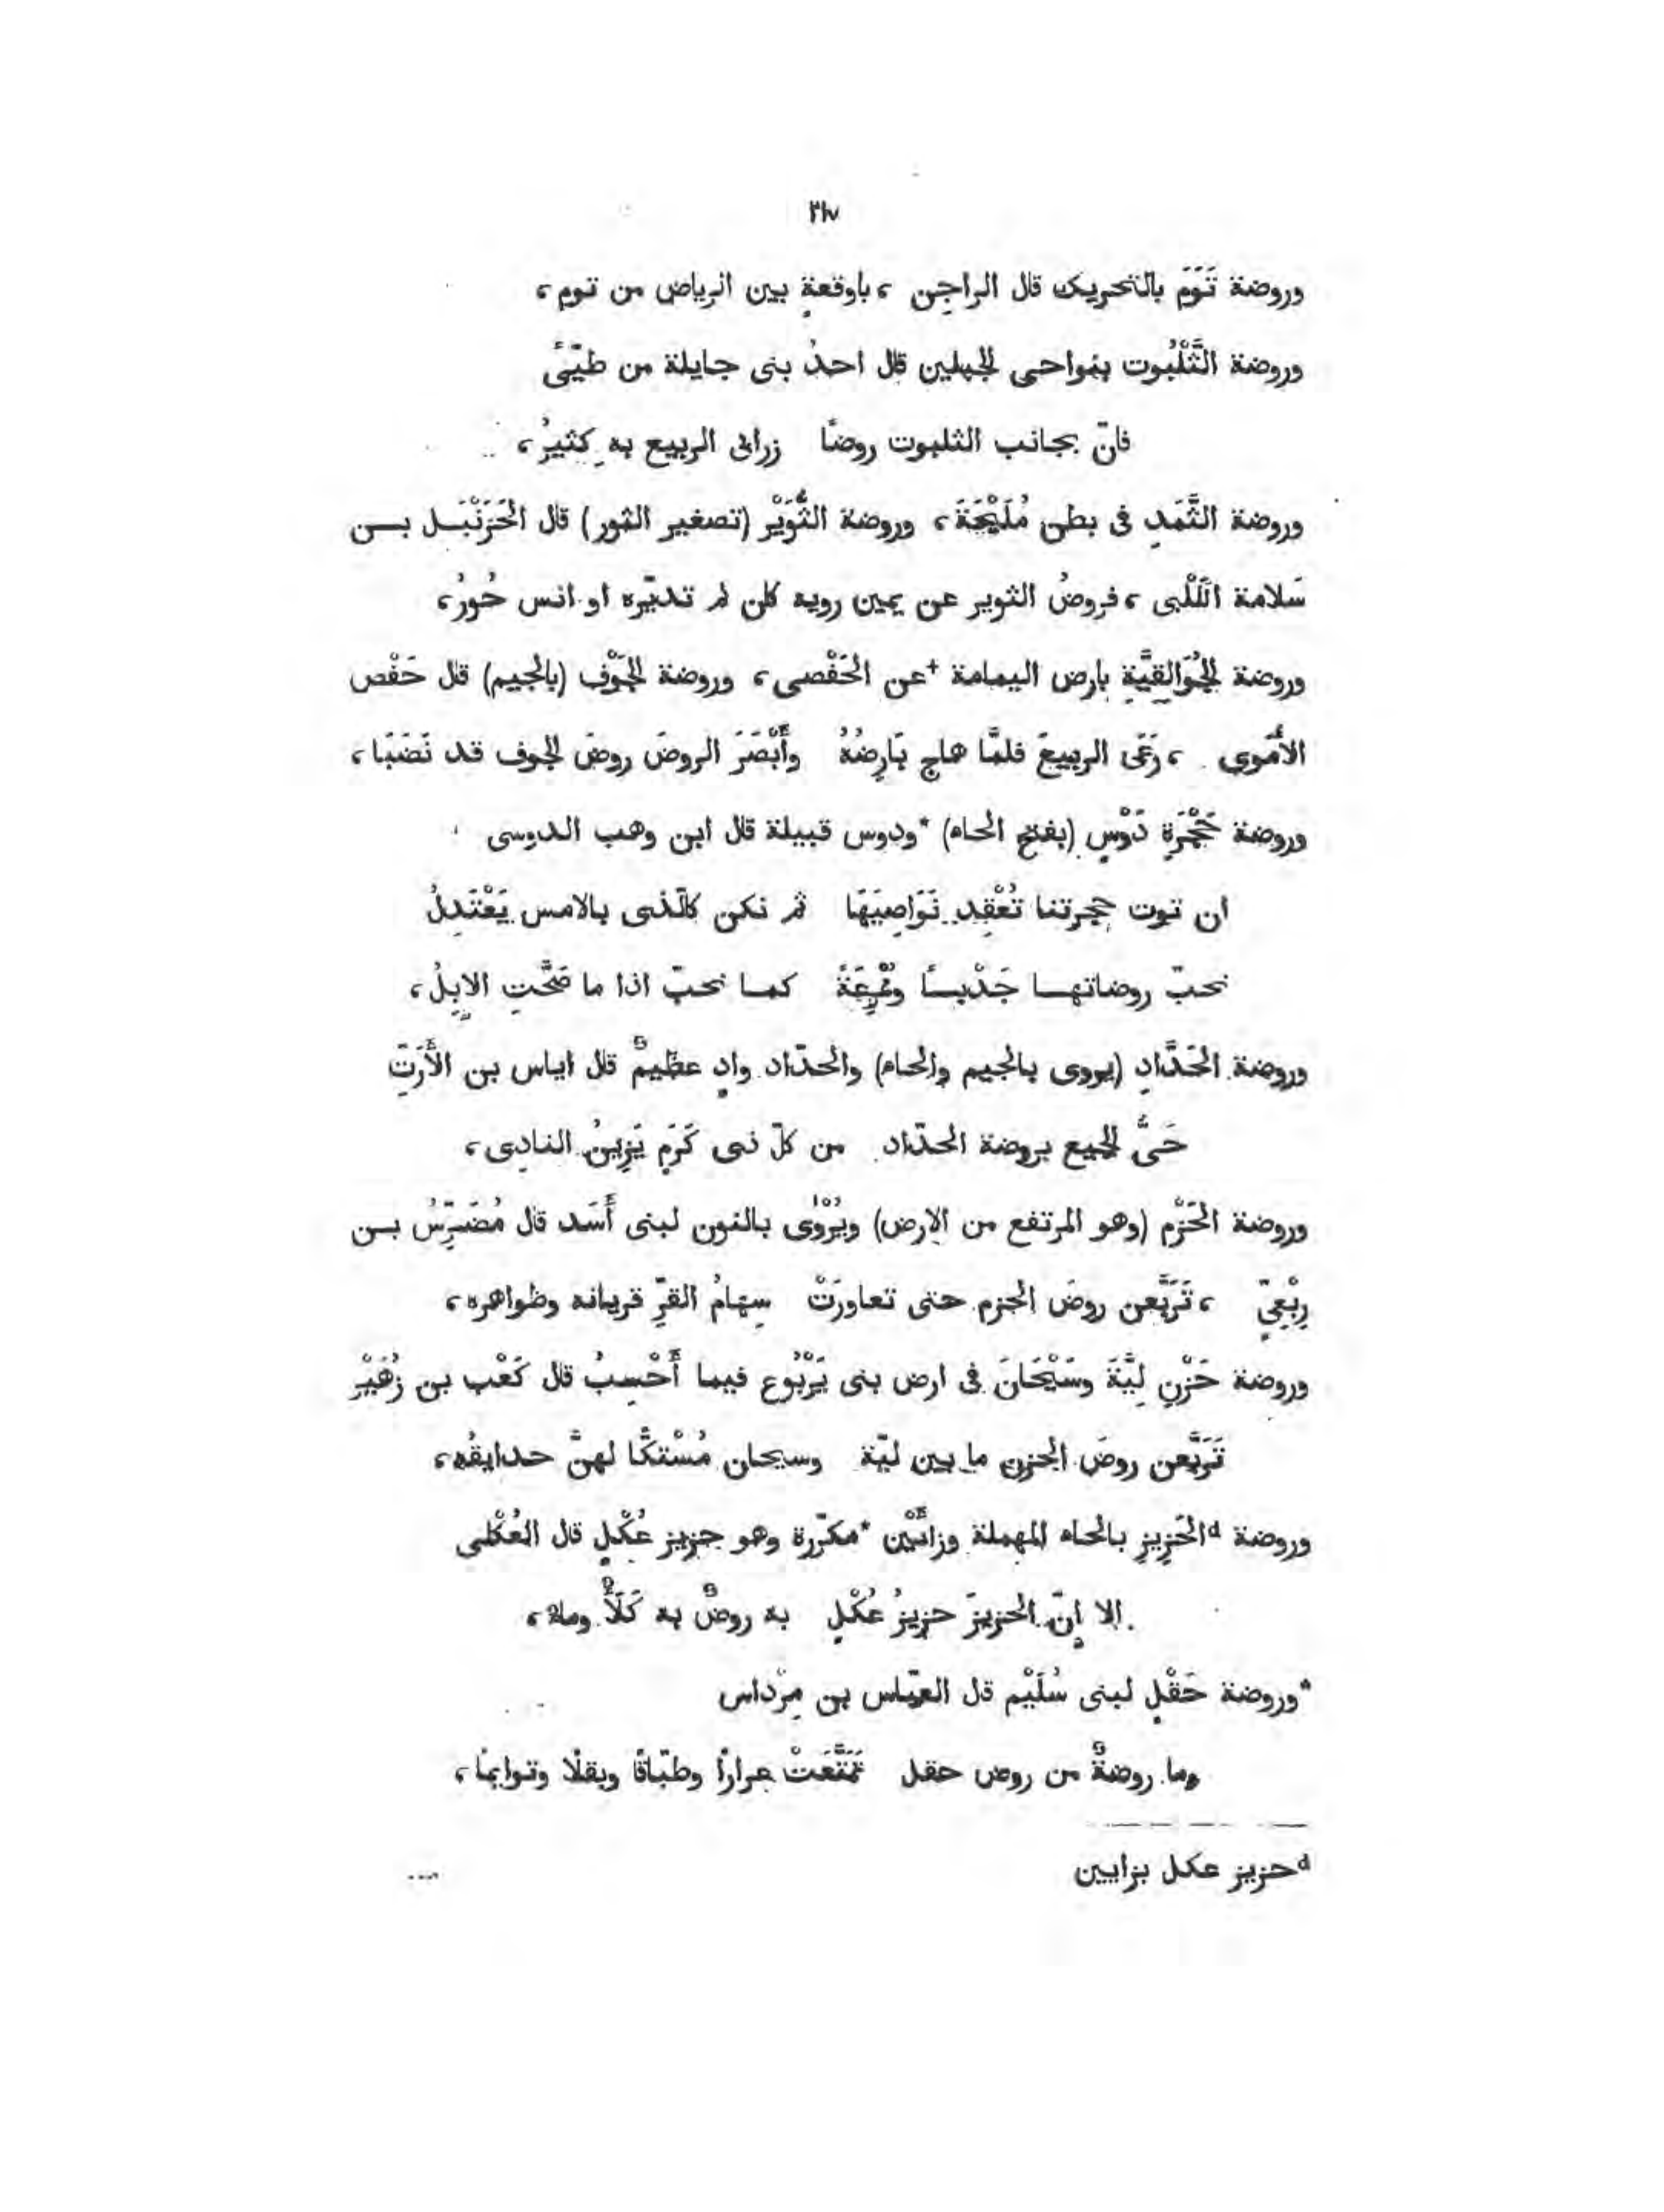 ٢١٧
وروضة تَوَمَ بالتحريك قال الراجز ، باوقعةٍ بين الرياض من توم ،
وروضة الثَّلْبُوت بنواحى الجبلين قال احدُ بنى جديلة من طيّئ
فانّ بجانب الثلبوت روضًا زرابى الربيع به كثيرُ ،
وروضة الثَّمَدِ فى بطن مُلَيْحَةَ ، وروضة الثُّوَيْر (تصغير الثور) قال الحَزَنْبَل بن
سَلامة الكَلْبى ، فروضُ الثوير عن يمين روية كان لم تديّره او انس حُورُ ،
وروضة الجُوَالقِيَّةِ بارض اليمامة +عن الحَفْصى ، وروضة الجَوْف (بالجيم) قال حَفْص
الأُمَوى ، رَعَى الربيعَ فلمَّا هاج بَارِضُهُ وأَبْصَرَ الروضَ روضَ الجوف قد نَضَبَا ،
وروضة حَجْرَةِ دَوْسٍ (بفتح الحاء) *ودوس قبيلة قال ابن وهب الدوسى
ان توت حجرتنا تُعْقِد نَوَاصِيَهَا ثم نكن كالّذى بالامس يَعْتَدِلُ
نحبّ روضاتها جَدْبًا ومُمْرِعَةً كما نحبّ اذا ما صَحَّتِ الابِلُ ،
وروضة الحَدَّادِ (يروى بالجيم والحاء) والحدّاد وادٍ عظيمٌ قال اياس بن الأَرَتِّ
حَىُّ الجميع بروضة الحدّاد من كلّ ذى كَرَمٍ يَزِينُ النادى ،
وروضة الحَزْم (وهو المرتفع من الارض) ويُرْوَى بالنون لبنى أَسَد قال مُضَرِّسُ بن
رِبْعِىٍّ ، تَرَبَّعن روضَ الحزم حتى تعاورَتْ سِهامُ القرِّ قريانه وظواهره ،
وروضة حَزْنِ لِيَّةَ وسَيْحَانَ فى ارض بنى يَرْبُوع فيما أَحْسِبُ قال كَعْب بن زُهَيْر
تَرَبَّعن روضَ الحزن ما بين ليّة وسيحان مُسْتكًّا لهنَّ حدايقُه ،
وروضة dالحَزِيزِ بالحاء المهملة وزائَيْن *مكرّرة وهو حزيز عُكْلٍ قال العُكْلى
الا إنّ الحزيزَ حزيزُ عُكْلٍ به روضٌ به كَلَأٌ وماء ،
*وروضة حَقْلٍ لبنى سُلَيْم قال العبّاس بن مِرْداس
وما روضةٌ من روض حقل تَمَتَّعَتْ عرارًا وطبّاقًا وبقلًا وتوابما ،
dحزيز عكل بزايين